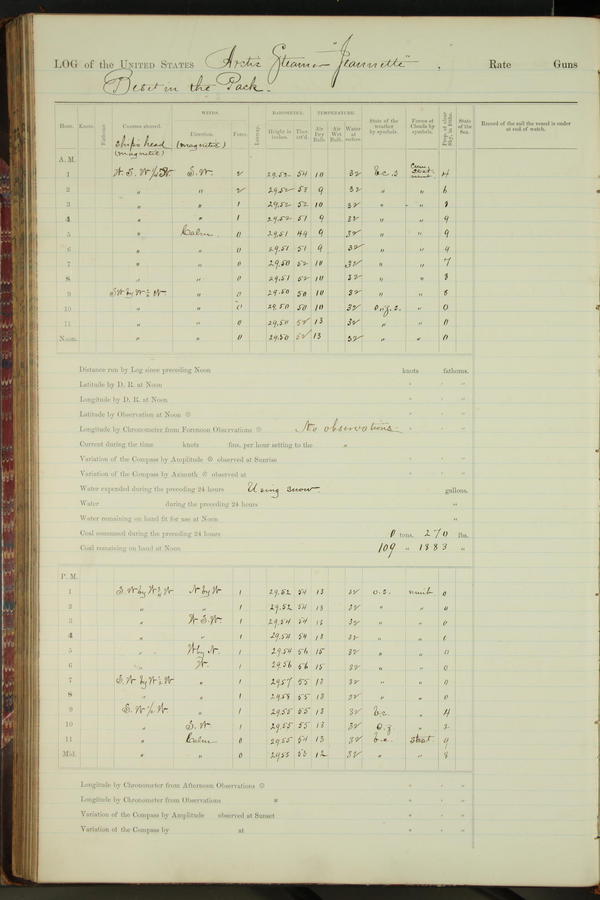 LOG of the UNITED STATES Arctic Steamer "Jeannette", Rate Guns
Beset in the Pack.
WINDS. BAROMETER. TEMPERATURE.
Hour. Knots. Fathoms. Courses steered. Direction. Force. Leeway. Height in inches. Ther. att'd. Air Dry Bulb. Air Wet Bulb. Water at surface. State of the weather by symbols. Forms of Clouds by symbols. Prop. of clear Sky, in 10ths. State of the Sea. Record of the sail the vessel is under at end of watch.
Ship's head (magnetic) (magnetic)
A. M.
1 S. W. 2 29.52 54 10 32 b.c.s 4
2 " " 2 29.52 53 9 32 " " 6
3 " " 1 29.52 52 10 32 " " 8
4 " " 1 29.52 51 9 32 " " 9
5 " Calm 0 29.51 49 9 32 " " 9
6 " " 0 29.51 51 9 32 " " 9
7 " " 0 29.50 52 10 32 " " 7
8 " " 0 29.51 52 10 32 " " 8
9 SW by W ½ W " 0 29.50 50 10 32 " " 8
10 " " 0 29.50 50 10 32 " 0
11 " " 0 29.50 52 13 32 " " 0
Noon. " " 0 29.50 52 13 32 " " 0
Distance run by Log since preceding Noon knots fathoms.
Latitude by D. R. at Noon ° ' "
Longitude by D. R. at Noon ° ' "
Latitude by Observation at Noon ° ' "
Longitude by Chronometer from Forenoon Observations No observations ° ' "
Current during the time knots fms. per hour setting to the
Variation of the Compass by Amplitude observed at Sunrise ° ' "
Variation of the Compass by Azimuth observed at ° ' "
Water expended during the preceding 24 hours Using snow gallons.
Water during the preceding 24 hours "
Water remaining on hand fit for use at Noon "
Coal consumed during the preceding 24 hours 0 tons. 270 lbs.
Coal remaining on hand at Noon 109 " 1883 "
P. M.
1 S. W by W ½ W N by W 1 29.52 54 13 32 o.s. nimb 0
2 " " 1 29.52 54 13 32 " " 0
3 " W. S. W. 1 29.54 54 13 32 " " 0
4 " " 1 29.54 54 13 32 " " 0
5 " W by N. 1 29.54 56 15 32 " " 0
6 " W. 1 29.56 56 15 32 " " 0
7 S. W by W ½ W " 1 29.57 55 13 32 " " 0
8 " " 1 29.58 55 13 32 " " 0
9 S. W ½ W " 1 29.55 55 13 32 b.c. " 4
10 " S. W. 1 29.55 55 13 32 "
11 " Calm 0 29.55 54 13 32 b.c. Strat 9
Mid. " " 0 29.53 53 12 32 " " 8
Longitude by Chronometer from Afternoon Observations ° ' "
Longitude by Chronometer from Observations ° ' "
Variation of the Compass by Amplitude observed at Sunset ° ' "
Variation of the Compass by at ° ' "